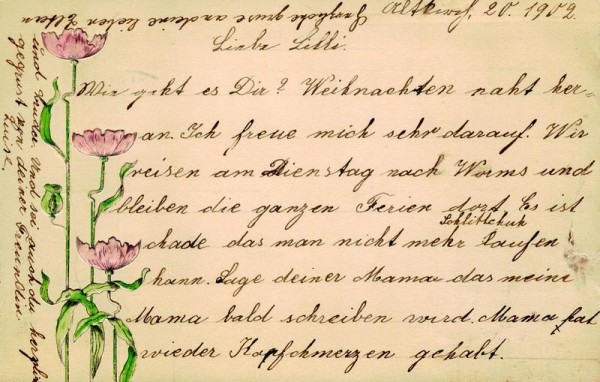 20. 1902.
Liebe Lilli.
Wie geht es Dir? Weihnachten naht her-
an. Ich freue mich sehr darauf. Wir
reisen am Dienstag nach Worms und
bleiben die ganzen Ferien dort. Es ist
schade das man nicht mehr Schlittchuh laufen
kann. Sage deiner Mama das meine
Mama bald schreiben wird. Mama hat
wieder Kopfchmerzen gehabt.
Herzliche grüse an deine lieben Eltern
und Sei auch du herzlich
gegrüst von deiner Freundin